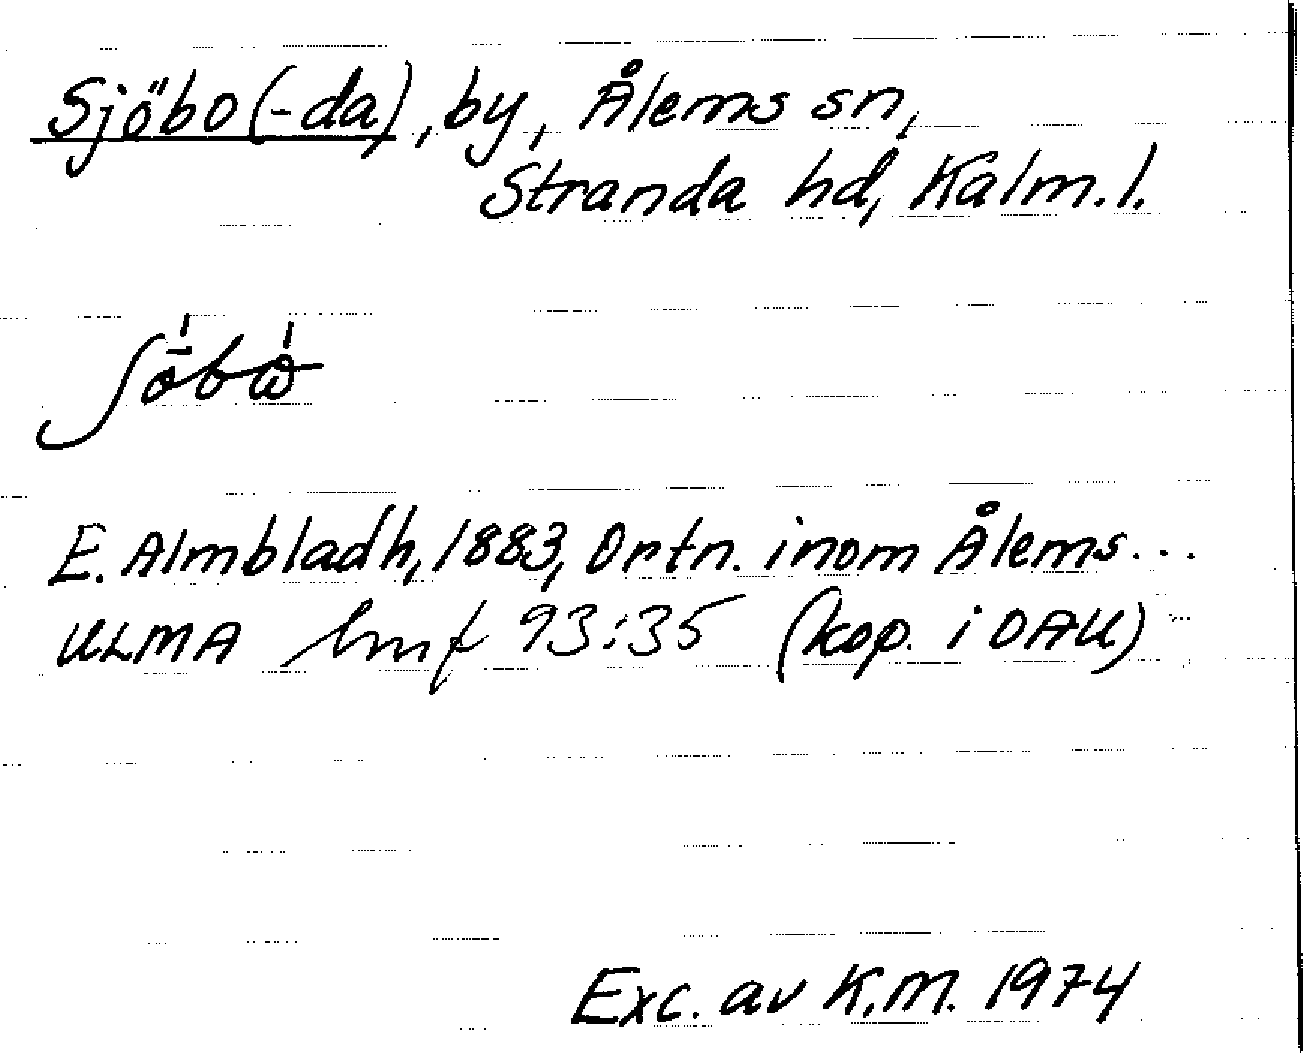 Sjöbo (-da), by, Ålems sn,
Stranda hd, Kalm. l.
E. Almbladh, 1883, Ortn. inom Ålems...
ULMA hmf 93:35 (kop. i OAU)
Exc. av K.M. 1974